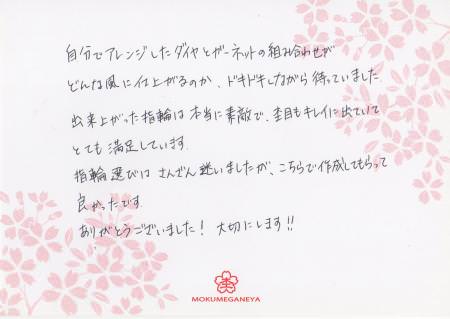 自分でアレンジしたダイヤとガーネットの組み合わせが
どんな風に仕上がるのか、ドキドキしながら待っていました
出来上がった指輪は本当に素敵で、杢目もキレイに出ていて
とても満足しています.
指輪選びは さんざん迷いましたが、こちらで作成してもらって
良かったです.
ありがとうございました! 大切にします!!
MOKUMEGANEYA